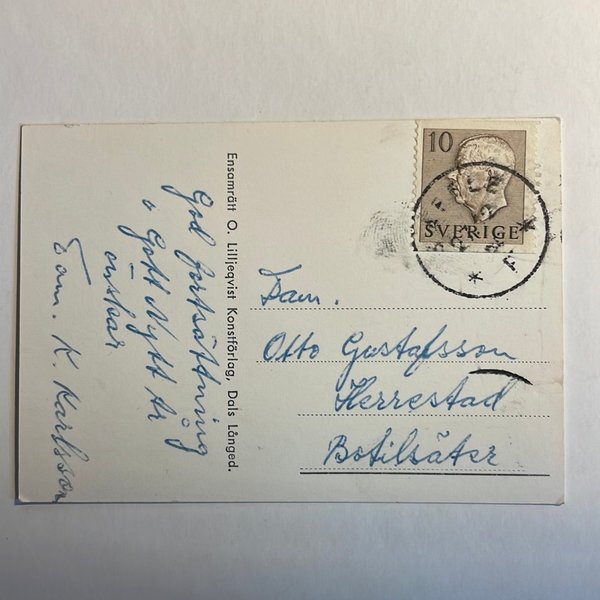 10
SVERIGE
Ensamrätt O. Lilljeqvist Konstförlag, Dals Långed.
God fortsättning
å Gott Nytt År
önskar
Fam. K. Karlsson
Fam.
Otto Gustafsson
Herrestad
Botilsäter